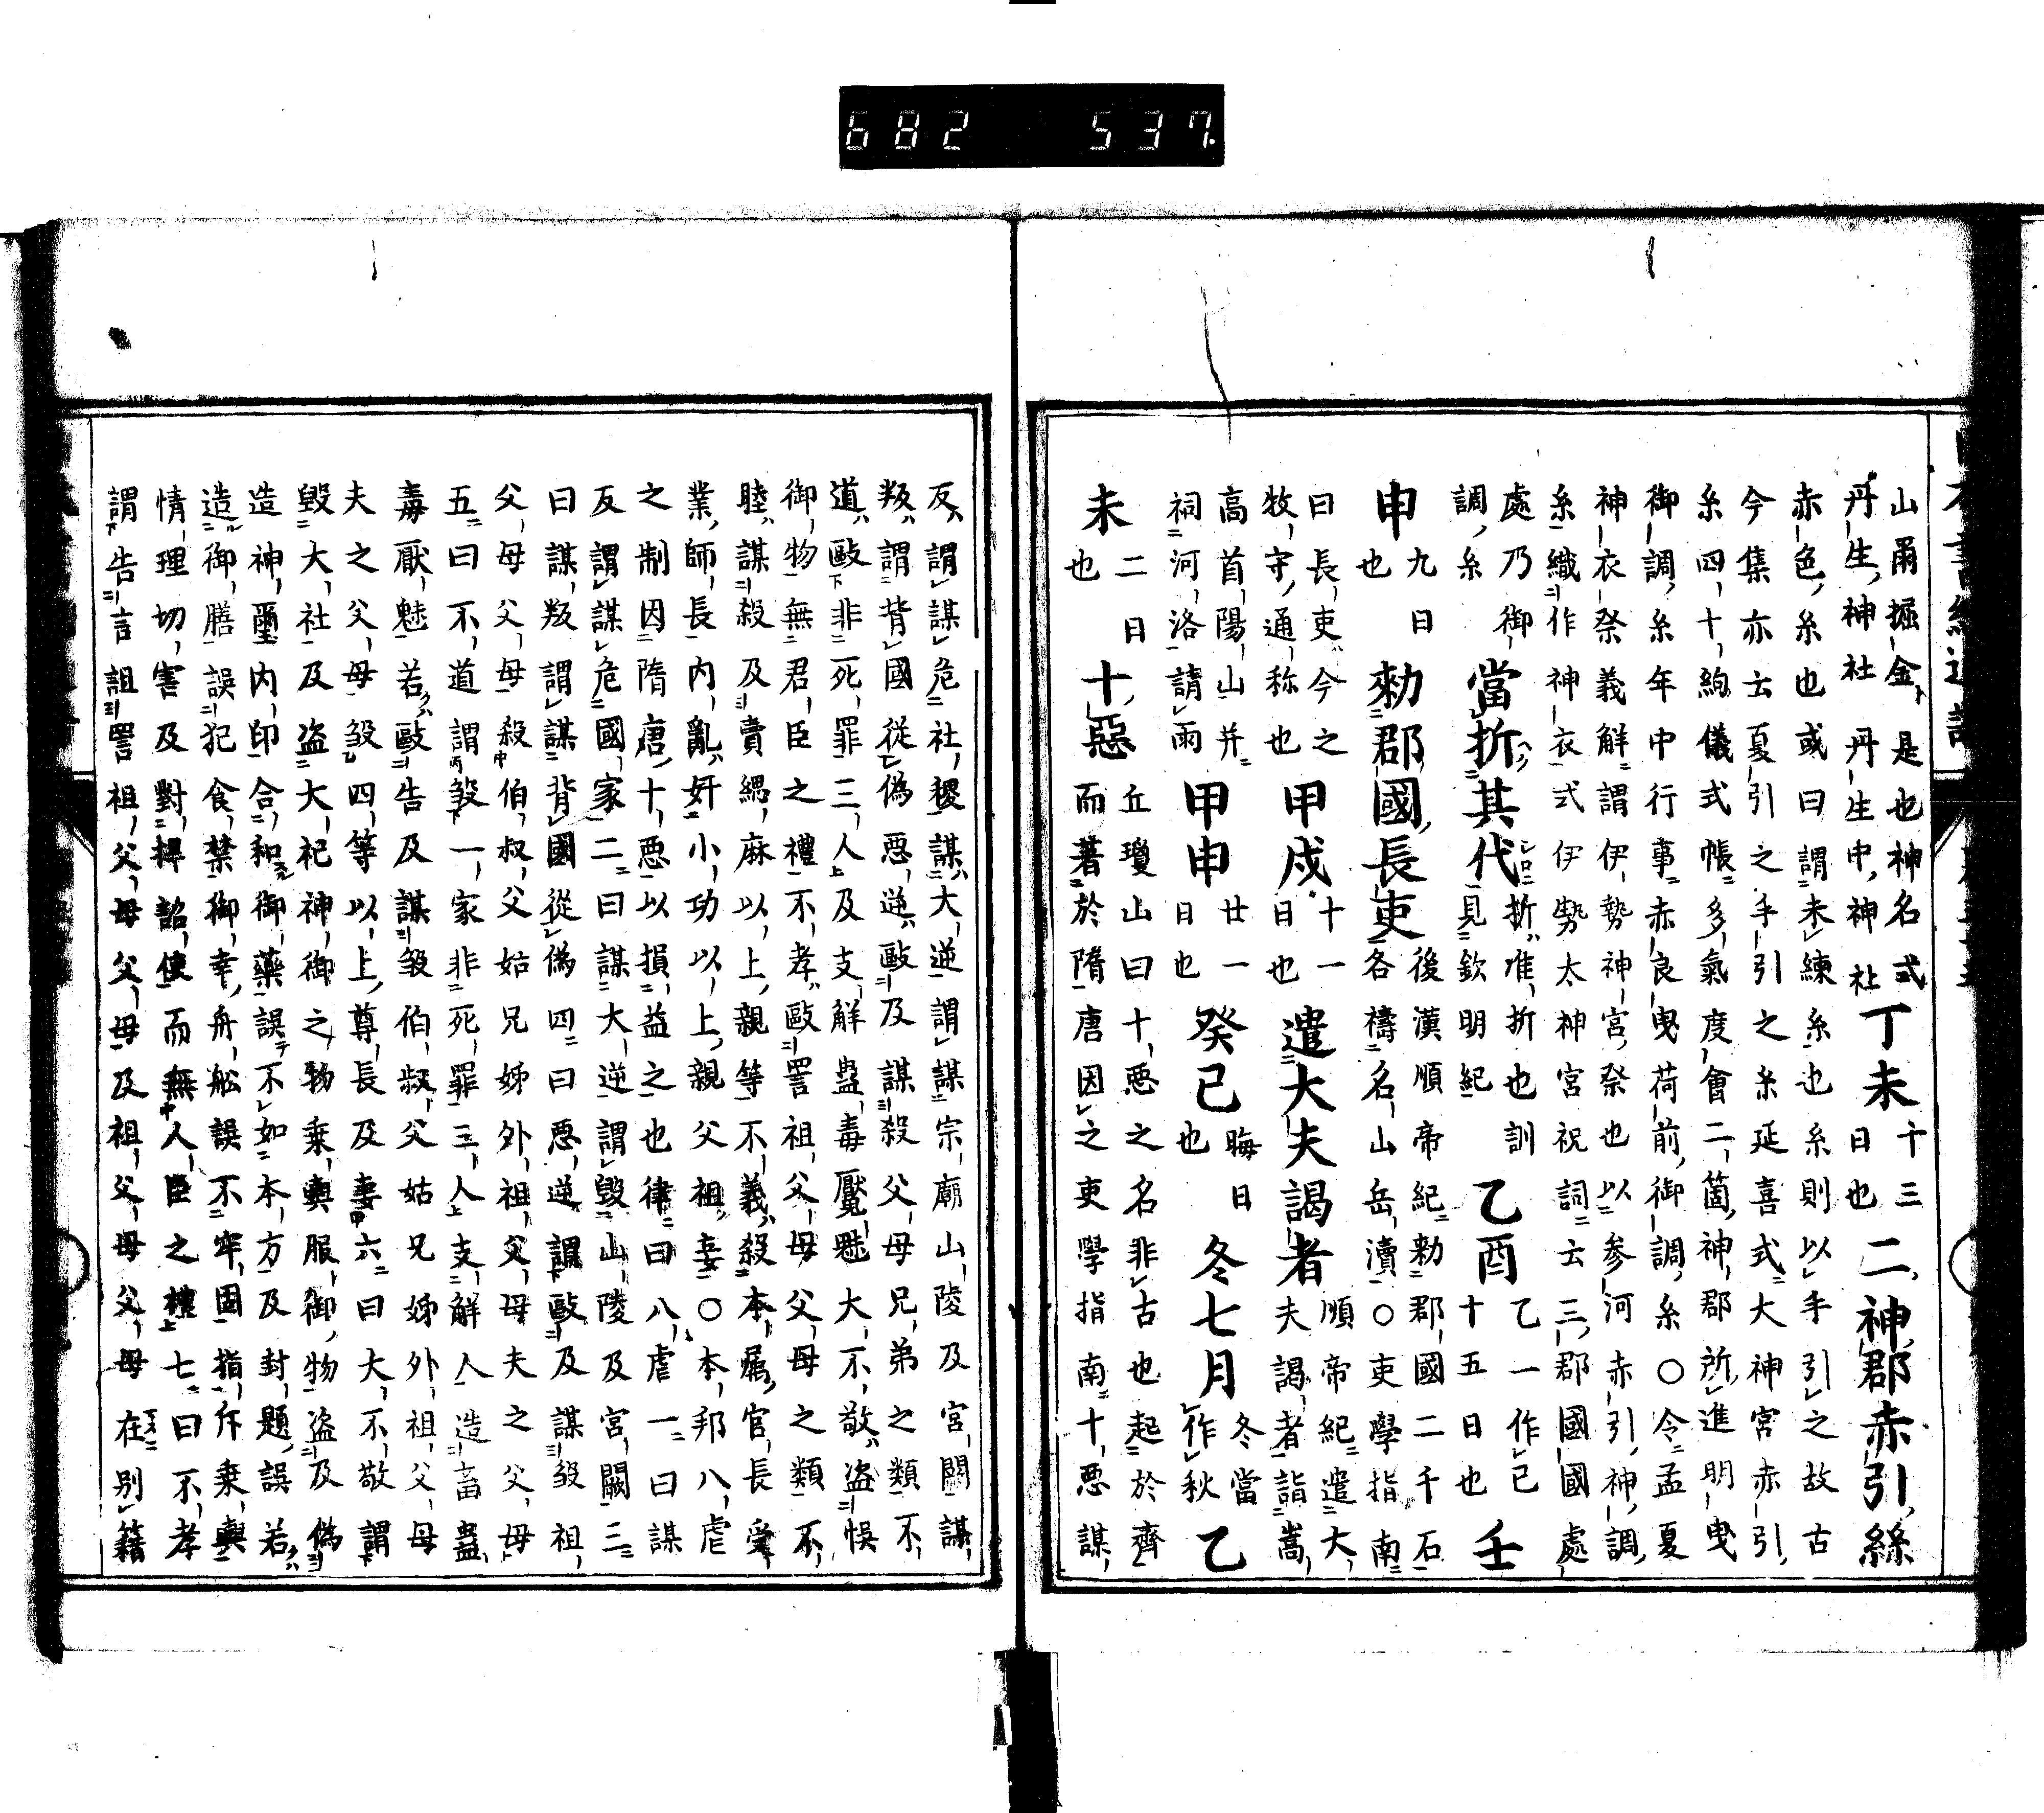 682 537
山爾掘金是也神名式
丹生神社 丹生中神社
丁未
十三
日也
二神郡赤引絲
赤色糸也或曰謂未練糸也糸則以手引之故古
今集亦云夏引之手引之糸延喜式大神宮赤引
糸四十絇儀式帳多氣度會二箇神郡所進明曳
御調糸年中行事赤良曳荷前御調糸○令孟夏
神衣祭義解謂伊勢神宮祭也以參河赤引神調
糸織作神衣式伊勢太神宮祝詞云三郡國國處
處乃御
調糸
當折其代
折准折也訓
見欽明紀
乙酉
乙一作己
十五日也
壬
申
九日
也
勑郡國長吏
後漢順帝紀勑郡國二千石
各禱名山岳瀆○吏學指南
曰長吏今之
牧守通称也
甲戌
十一
日也
遣大夫謁者
順帝紀遣大
夫謁者詣嵩
高首陽山并
祠河洛請雨
甲申
廿一
日也
癸己
晦日
也
冬七月
冬當
作秋
乙
未
二日
也
十惡
丘瓊山曰十悪之名非古也起於齊
而著於隋唐因之吏學指南十悪謀
反謂謀危社稷謀大逆謂謀宗廟山陵及宮闕謀
叛謂背國從偽悪逆毆及謀殺父母兄弟之類不
道毆非死罪三人及支解蠱毒魘魅大不敬盗悞
御物無君臣之禮不孝毆詈祖父母父母之類不
睦謀殺及賣緦麻以上親等不義殺本属官長受
業師長内亂奸小功以上親父祖妾○本邦八虐
之制因隋唐十悪以損益之也律曰八虐一曰謀
反謂謀危國家二曰謀大逆謂毀山陵及宮闕三
曰謀叛謂謀背國從偽四曰悪逆謂毆及謀殺祖
父母父母殺伯叔父姑兄姊外祖父母夫夫之父母
五曰不道謂殺一家非死罪三人支解人造畜蠱
毒厭魅若毆告及謀殺伯叔父姑兄姊外祖父母
夫之父母殺四等以上尊長及妻六曰大不敬謂
毀大社及盗大祀神御之物乗輿服御物盗及偽
造神璽内印合和御藥誤不如本方及封題誤若
造御膳誤犯食禁御幸舟舩誤不牢固指斥乗輿
情理切害及對捍詔使而無人臣之禮七曰不孝
謂告言詛詈祖父母父母及祖父母父母在別籍